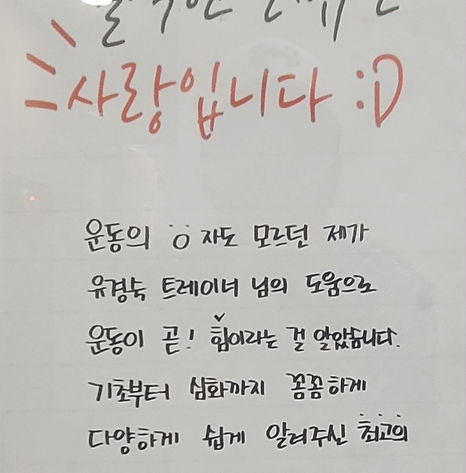 사랑입니다 :D
운동의 ㅇ자도 모르던 제가
유경숙 트레이너 님의 도움으로
운동이 곧! 힘이라는 걸 알았습니다.
기초부터 심화까지 꼼꼼하게
다양하게 쉽게 알려주신 최고의